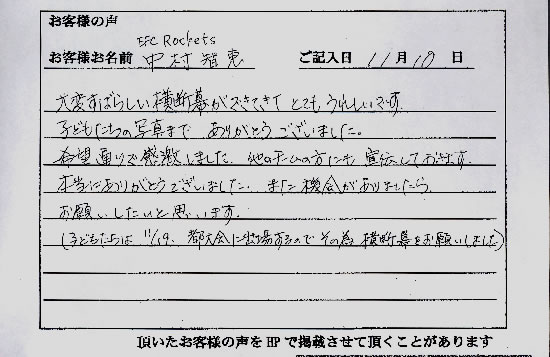 お客様の声
EFC Rockets
お客様お名前 中村智恵 ご記入日 11月10日
大変すばらしい横断幕ができてきて とてもうれしいです
子どもたちの写真まで ありがとうございました。
希望通りで感激しました。他のチームの方にも 宣伝しておきます。
本当にありがとうございました。また機会がありましたら
お願いしたいと思います。
(子どもたちは 11/19、都大会に出場するので その為 横断幕をお願いしました)
頂いたお客様の声をHPで掲載させて頂くことがあります